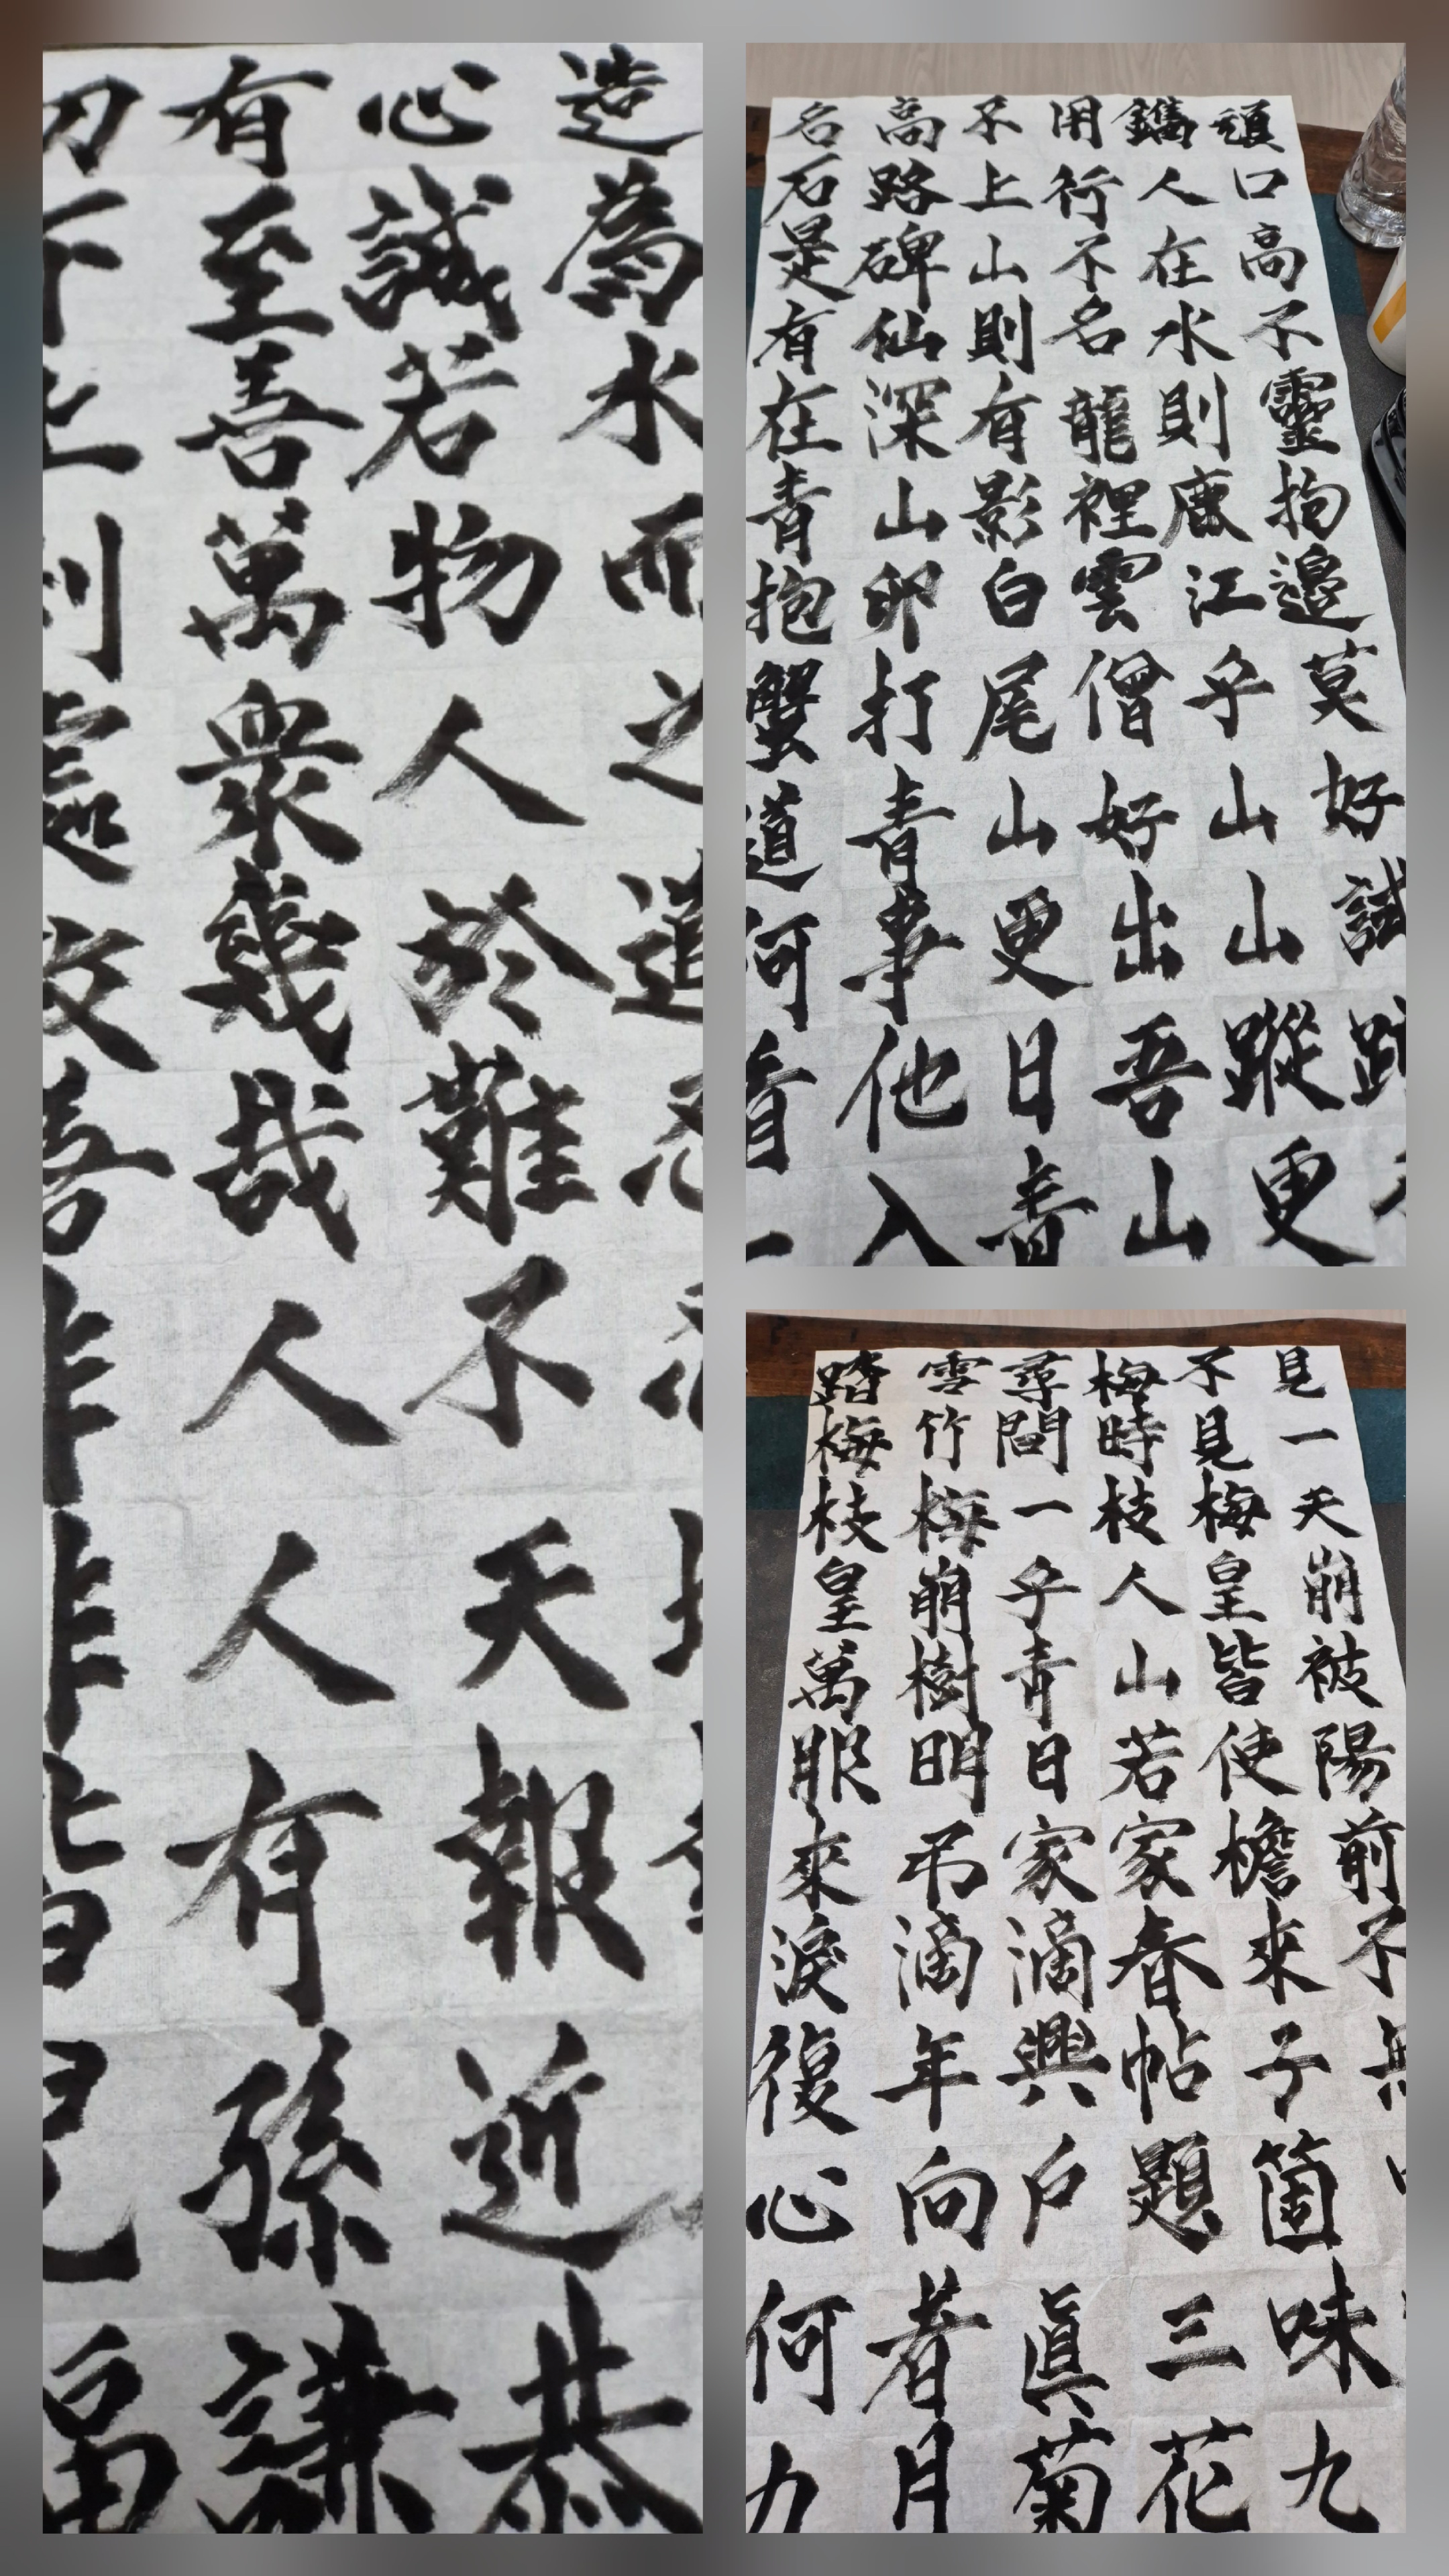 有心造
下至誠爲
上善若水
利萬物而
處衆人之
故幾於道
善哉難忍
非人不忍
非人天地
皆有報
孫近
福謙恭
名高不用鐫頑
石路上行人口
是碑山不在高
有仙則名水不
在深有龍則靈
青山影裡鹿拘
抱卵白雲江邊
蟹打尾僧乎莫
道青山好山好
何事更出山試
看他日吾蹤跡
一入青山更不
踏雪尋梅不見
梅竹間時見一
枝梅一枝梅天
皇崩乎人皇崩
萬樹青山皆被
服明日若使陽
來弔家家檐前
淚滴滴春來不
復年興帖子無
心向戶題箇
何者眞三味
九月菊花九